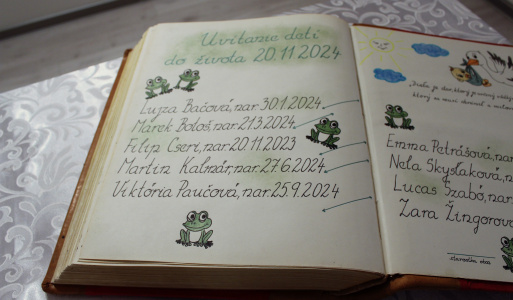 Uvítanie detí
do života 20.11.2024
Lujza Baćová, nar. 30.1.2024
Márek Botoš, nar. 21.3.2024
Filip Cseri, nar. 20.11.2023
Martin Kalmár, nar. 27.6.2024
Viktória Paućová, nar. 25.9.2024
Emma Petrášová, nar
Nela Skyslaková, n
Lucas Szabó, nar.
Zara Žingorov
starostka obce